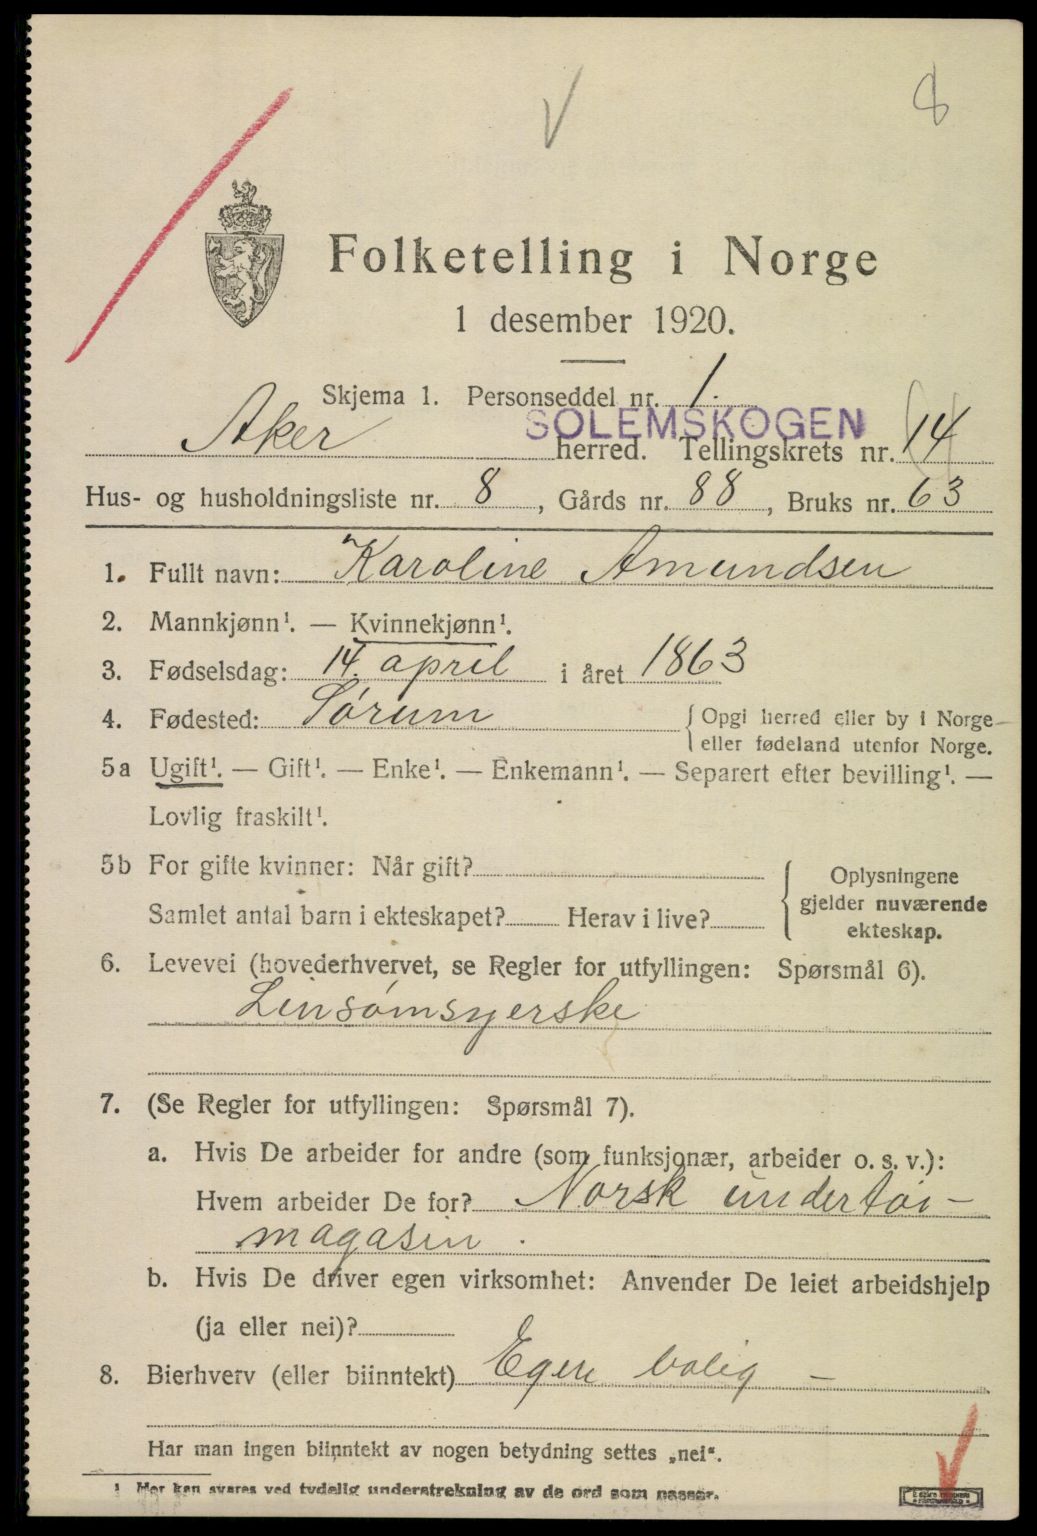 8
Folketelling i Norge
1 desember 1920.
Skjema 1. Personseddel nr. 1.
SOLEMSKOGEN
Aker herred. Tellingskrets nr. 14
Hus- og husholdningsliste nr. 8, Gårds nr. 88, Bruks nr. 63
1. Fullt navn: Karoline Amundsen
2. Mannkjønn¹. — Kvinnekjønn¹.
3. Fødselsdag: 14. april i året 1863
4. Fødested: Sørum { Opgi herred eller by i Norge
eller fødeland utenfor Norge.
5a Ugift¹. — Gift¹. — Enke¹. — Enkemann¹. — Separert efter bevilling¹. —
Lovlig fraskilt¹.
5b For gifte kvinner: Når gift?
Samlet antal barn i ekteskapet? Herav i live?
Oplysningene
gjelder nuværende
ekteskap.
6. Levevei (hovederhvervet, se Regler for utfyllingen: Spørsmål 6).
Linsømsyerske
7. (Se Regler for utfyllingen: Spørsmål 7).
a. Hvis De arbeider for andre (som funksjonær, arbeider o. s. v.):
Hvem arbeider De for? Norsk undertøi-
magasin.
b. Hvis De driver egen virksomhet: Anvender De leiet arbeidshjelp
(ja eller nei)?
8. Bierhverv (eller biinntekt) Egen bolig —
Har man ingen biinntekt av nogen betydning settes „nei“.
¹ Her kan svares ved tydelig understrekning av de ord som passer.